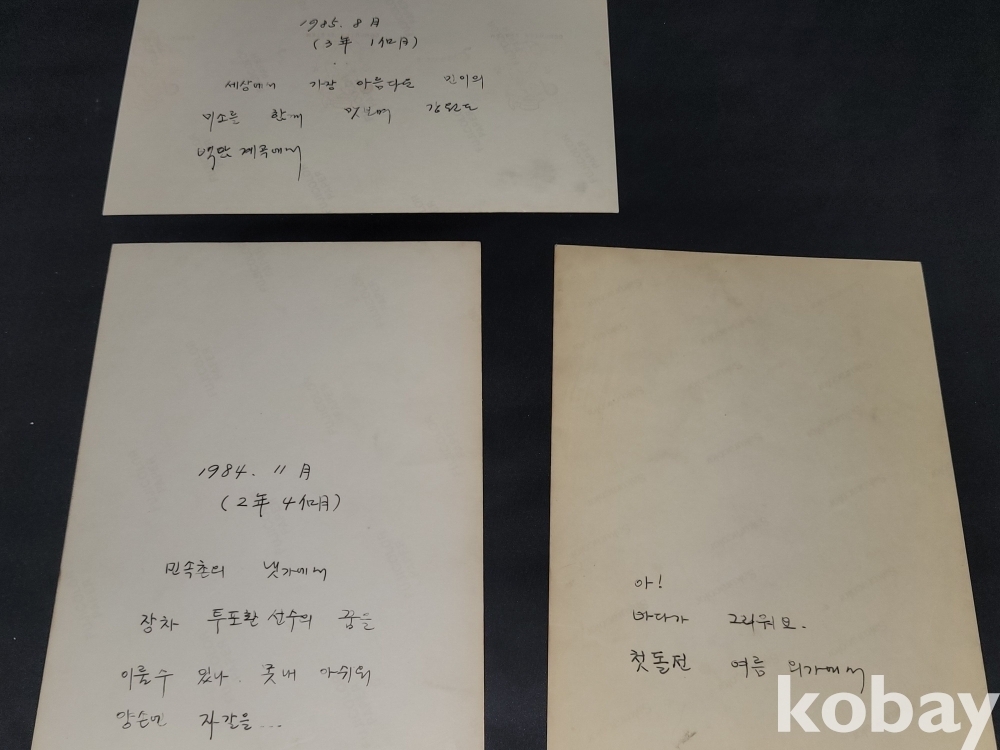 1985. 8月
(3年 1個月)
세상에서 가장 아름다운 민이의
미소를 함께 맛보며 강원도
백담 계곡에서
1984. 11月
(2年 4個月)
민속촌의 냇가에서
장차 투포환 선수의 꿈을
이룰수 있나. 못내 아쉬워
양손엔 자갈을...
아!
바다가 그리워요.
첫돌전 여름 외가에서
kobay